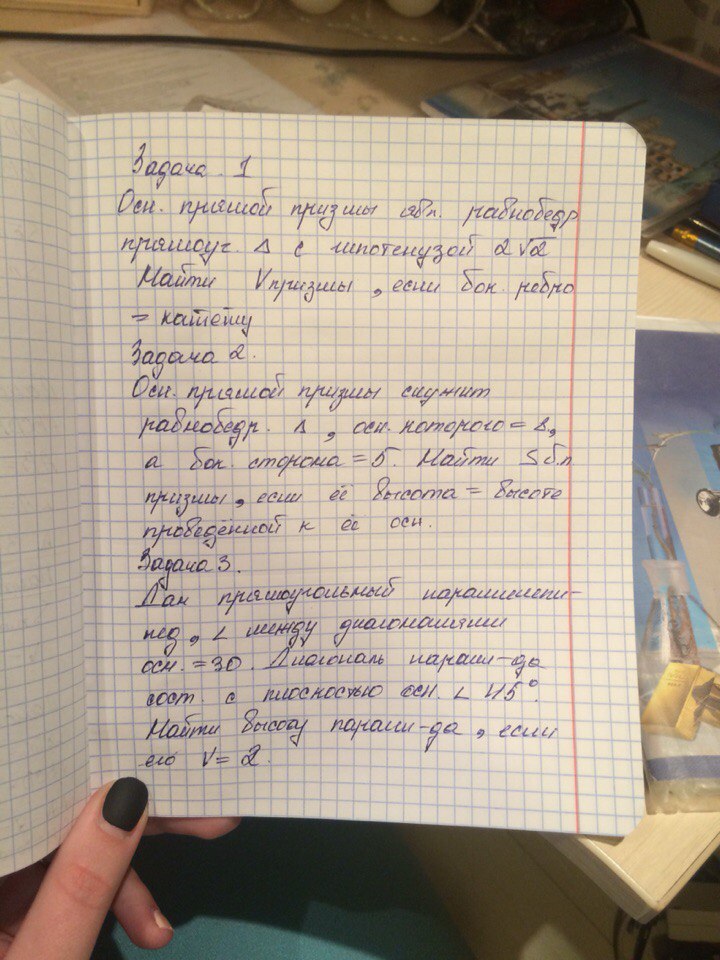 Задача. 1
Осн. прямой призмы явл. равнобедр.
прямоуг. Δ с гипотенузой 2√2
Найти Vпризмы, если бок. ребро
= катету
Задача 2.
Осн. прямой призмы служит
равнобедр. Δ, осн. которого =
а бок. сторона = 5. Найти Sб.п
призмы, если её высота = высоте
проведённой к её осн.
Задача 3.
Дан прямоугольный параллелепи-
пед, ∠ между диагоналями
осн. = 30. Диагональ паралл-да
сост. с плоскостью осн. ∠ 45°.
Найти высоту паралл-да, если
его V = 2.